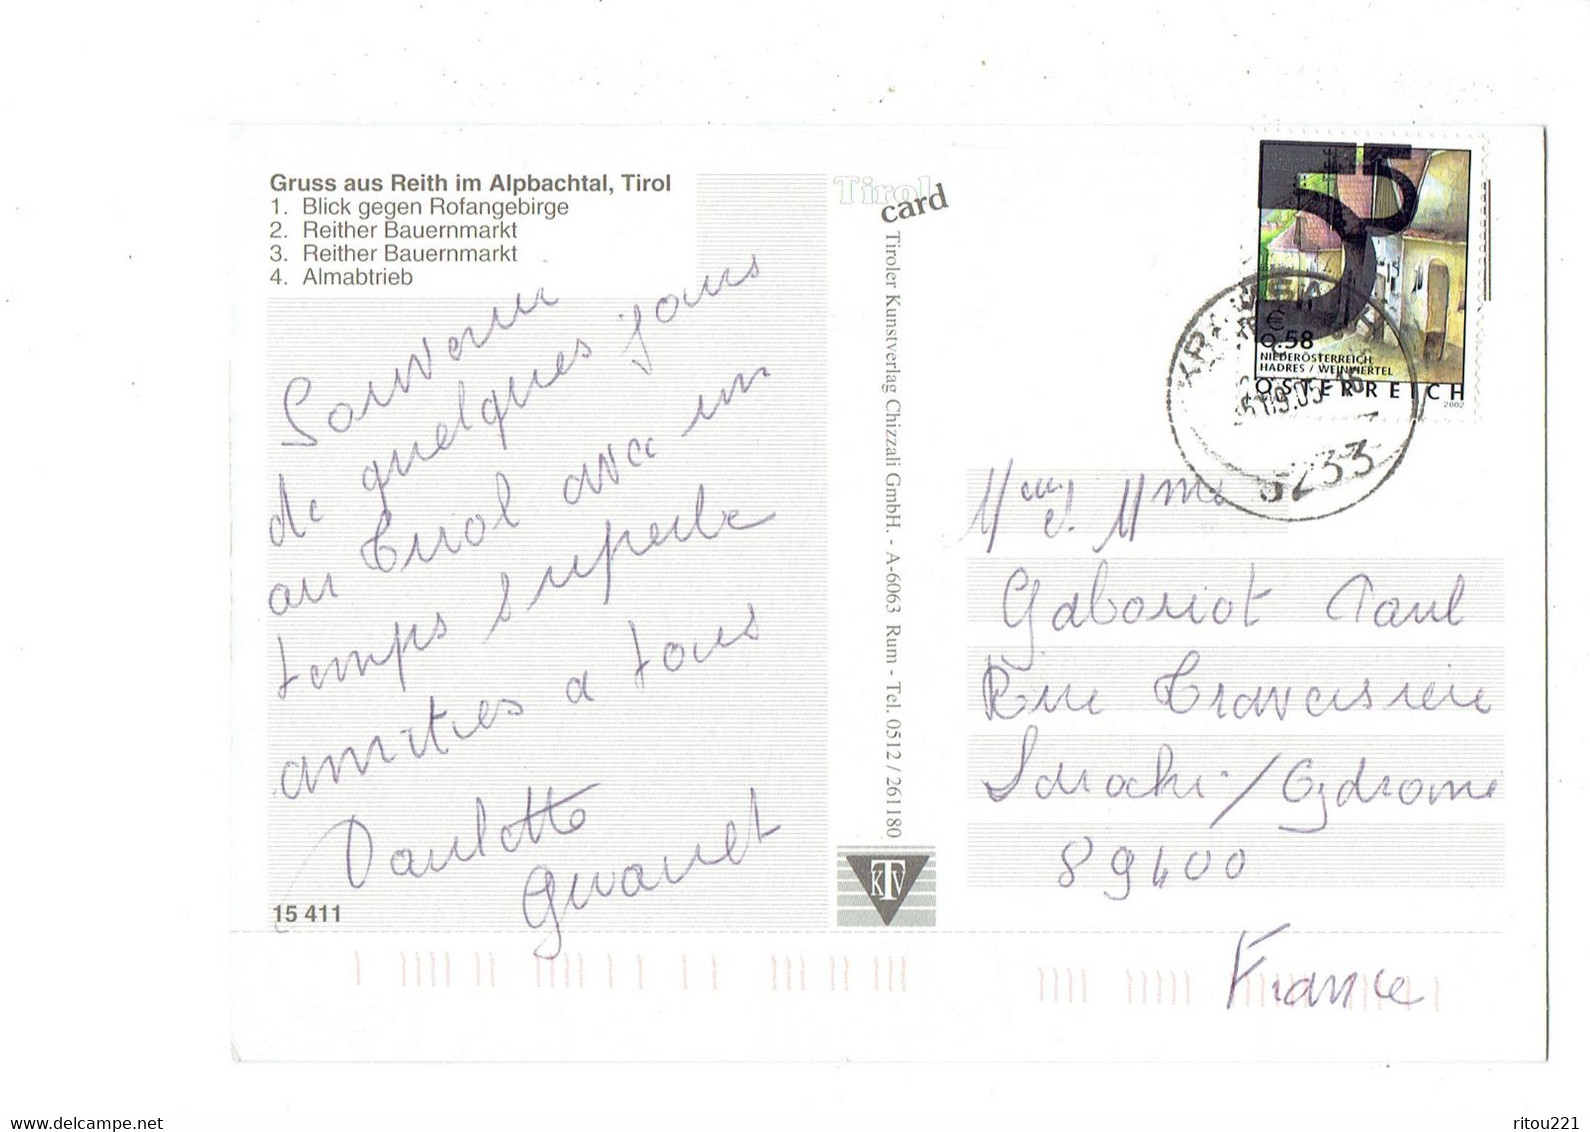 Gruss aus Reith im Alpbachtal, Tirol
1. Blick gegen Rofangebirge
2. Reither Bauernmarkt
3. Reither Bauernmarkt
4. Almabtrieb
Souvenir
de quelques jours
au Tirol avec un
temps superbe
amitiés a tous
Paulette
15 411
Tirol
card
Tiroler Kunstverlag Chizzali GmbH. - A-6063 Rum - Tel. 0512 / 261180
KTV
55
€
0.58
NIEDERÖSTERREICH
HADRES / WEINVIERTEL
ÖSTERREICH
2002
.09.05
6233
et Mme
Gaboriot Paul
Rue Traversière
Laroche / 
89400
France
ritou221